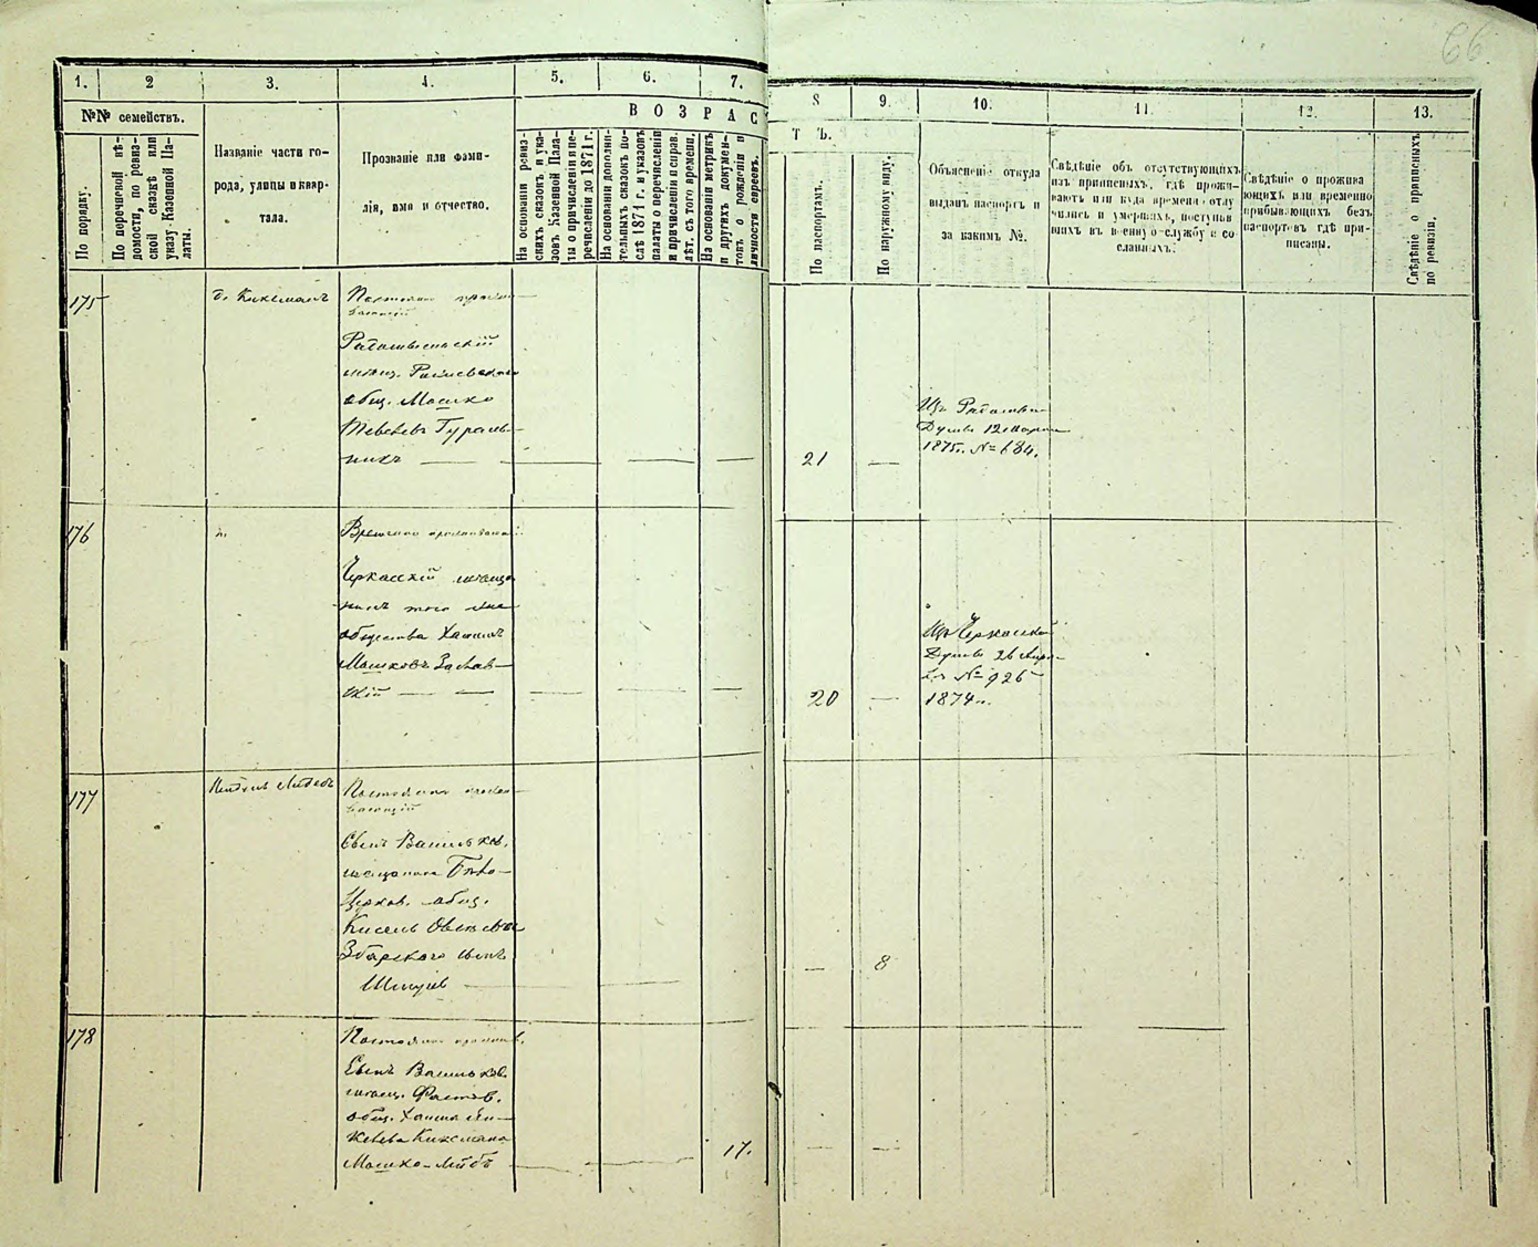 66.
1. 2 3. 4. 5. 6. 7. 8 9. 10. 11. 12. 13.
№№ семействъ.
По порядку.
По перечневой вѣ-
домости, по ревиз-
ской сказкѣ или
указу Казенной Па-
латы.
Названіе части го-
рода, улицы и квар-
тала.
Прозваніе или фами-
лія, имя и отчество.
В О З Р А С Т Ъ.
На основаніи ревиз-
скихъ сказокъ и ука-
зовъ Казенной Пала-
ты о причисленіи и пе-
речисленіи до 1871 г.
На основаніи дополни-
тельныхъ сказокъ по-
слѣ 1871 г. и указовъ
палаты о перечисленіи
и причисленіи и справ.
лѣт. съ того времени.
На основаніи метрикъ
и другихъ докумен-
товъ о рожденіи и
личности евреевъ.
По паспортамъ.
По наружному виду.
Объясненіе откуда
выданъ паспортъ и
за какимъ №.
Свѣдѣніе объ отсутствующихъ
изъ приписныхъ, гдѣ прожи-
ваютъ или куда временно отлу
чились и умершихъ, поступив
шихъ въ военную службу и со
сланныхъ.
Свѣдѣніе о прожива
ющихъ или временно
прибывающихъ безъ
паспортовъ гдѣ при-
писаны.
Свѣдѣніе о приписныхъ
по ревизіи.
175
д. Киксманъ
Постоянно прожи-
вающій
Радомысльскій
мѣщ.
общ. Мошко
Тевелевъ Гураль-
никъ — — — —
21 —
Изъ Радомысл.
Думы 12 Марта
1875 г. № 684.
176
Временно проживающ.
Черкасскій мѣща
нинъ того же
общества Хаимъ
Мошковъ Заслав-
скій — — — — —
20 —
Изъ Черкасской
Думы 26 Апрѣ-
ля № 926
1874 г.
177
Лейбовъ
Постоянно прожи-
вающій
Сынъ Васильков.
мѣщанина Бѣло-
Церков. общ.
Кисель
Збарскаго сынъ
Шмуль — —
— 8
178
Постоянно прожив.
Сынъ Васильков.
мѣщ. Фастов.
общ. Хаима
Киксмана
Мошко-Лейбъ — —
17. — —